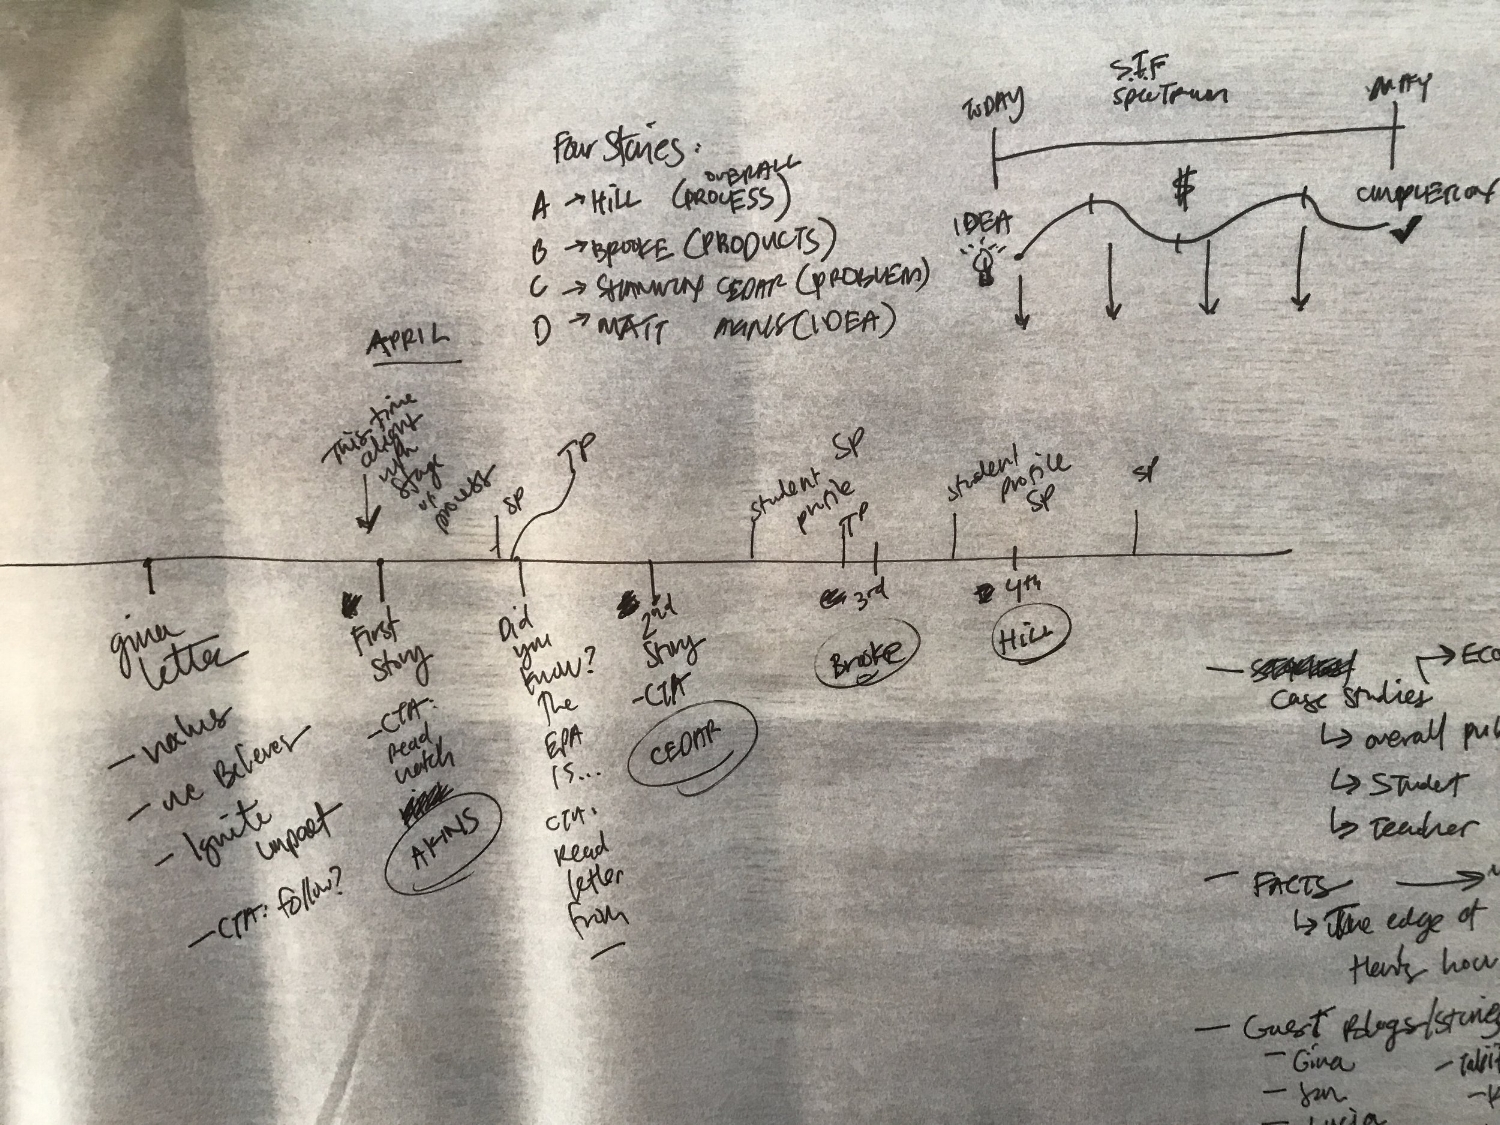 Four Stories:
A → HILL (OVERALL PROCESS)
B → BROOKE (PRODUCTS)
C → CEDAR (PROBLEM)
D → MATT AKINS (IDEA)
S.I.F
SPECTRUM
TODAY
MAY
IDEA
$
COMPLETION
APRIL
This time
alignt
wph
stage
of
process
SP
TP
student
profile
SP
TP
student
profile
SP
SP
gina
letter
- values
- we Believe
- Ignite
impact
- CTA: follow?
First
Story
- CTA:
read
watch
AKINS
Did
you
know?
The
EPA
is...
CTA:
Read
letter
from
2nd
Story
- CTA
CEDAR
3rd
Brooke
4th
Hill
- Case Studies
→ ECO
↳ overall pub
↳ Student
↳ Teacher
- FACTS →
↳ The edge of
how
- Guest Blogs/Stories
- Gina
- Jan
- Lucia